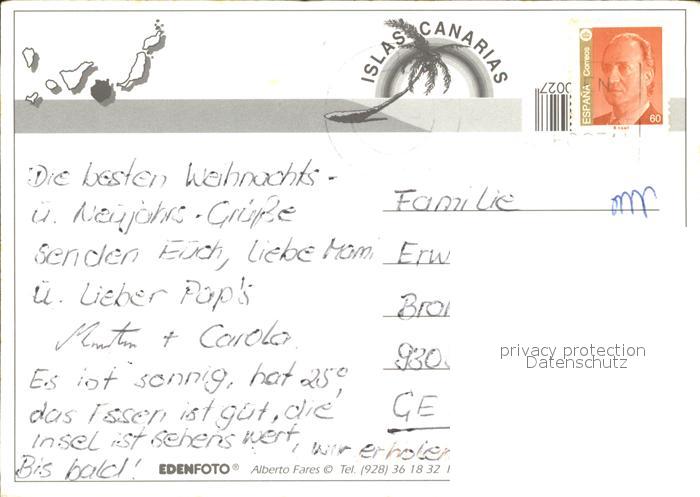 ISLAS CANARIAS
0027
ESPAÑA Correos
60
Die besten Weihnachts-
u. Neujahrs-Grüße
senden Euch, liebe Mami
u. lieber Pap's
Martin + Carola.
Es ist sonnig, hat 25°,
das Essen ist gut, die
Insel ist sehenswert, wir erholen
Bis bald!
Familie
Erw
Bra
930
GE
privacy protection
Datenschutz
EDENFOTO® Alberto Fares © Tel. (928) 36 18 32